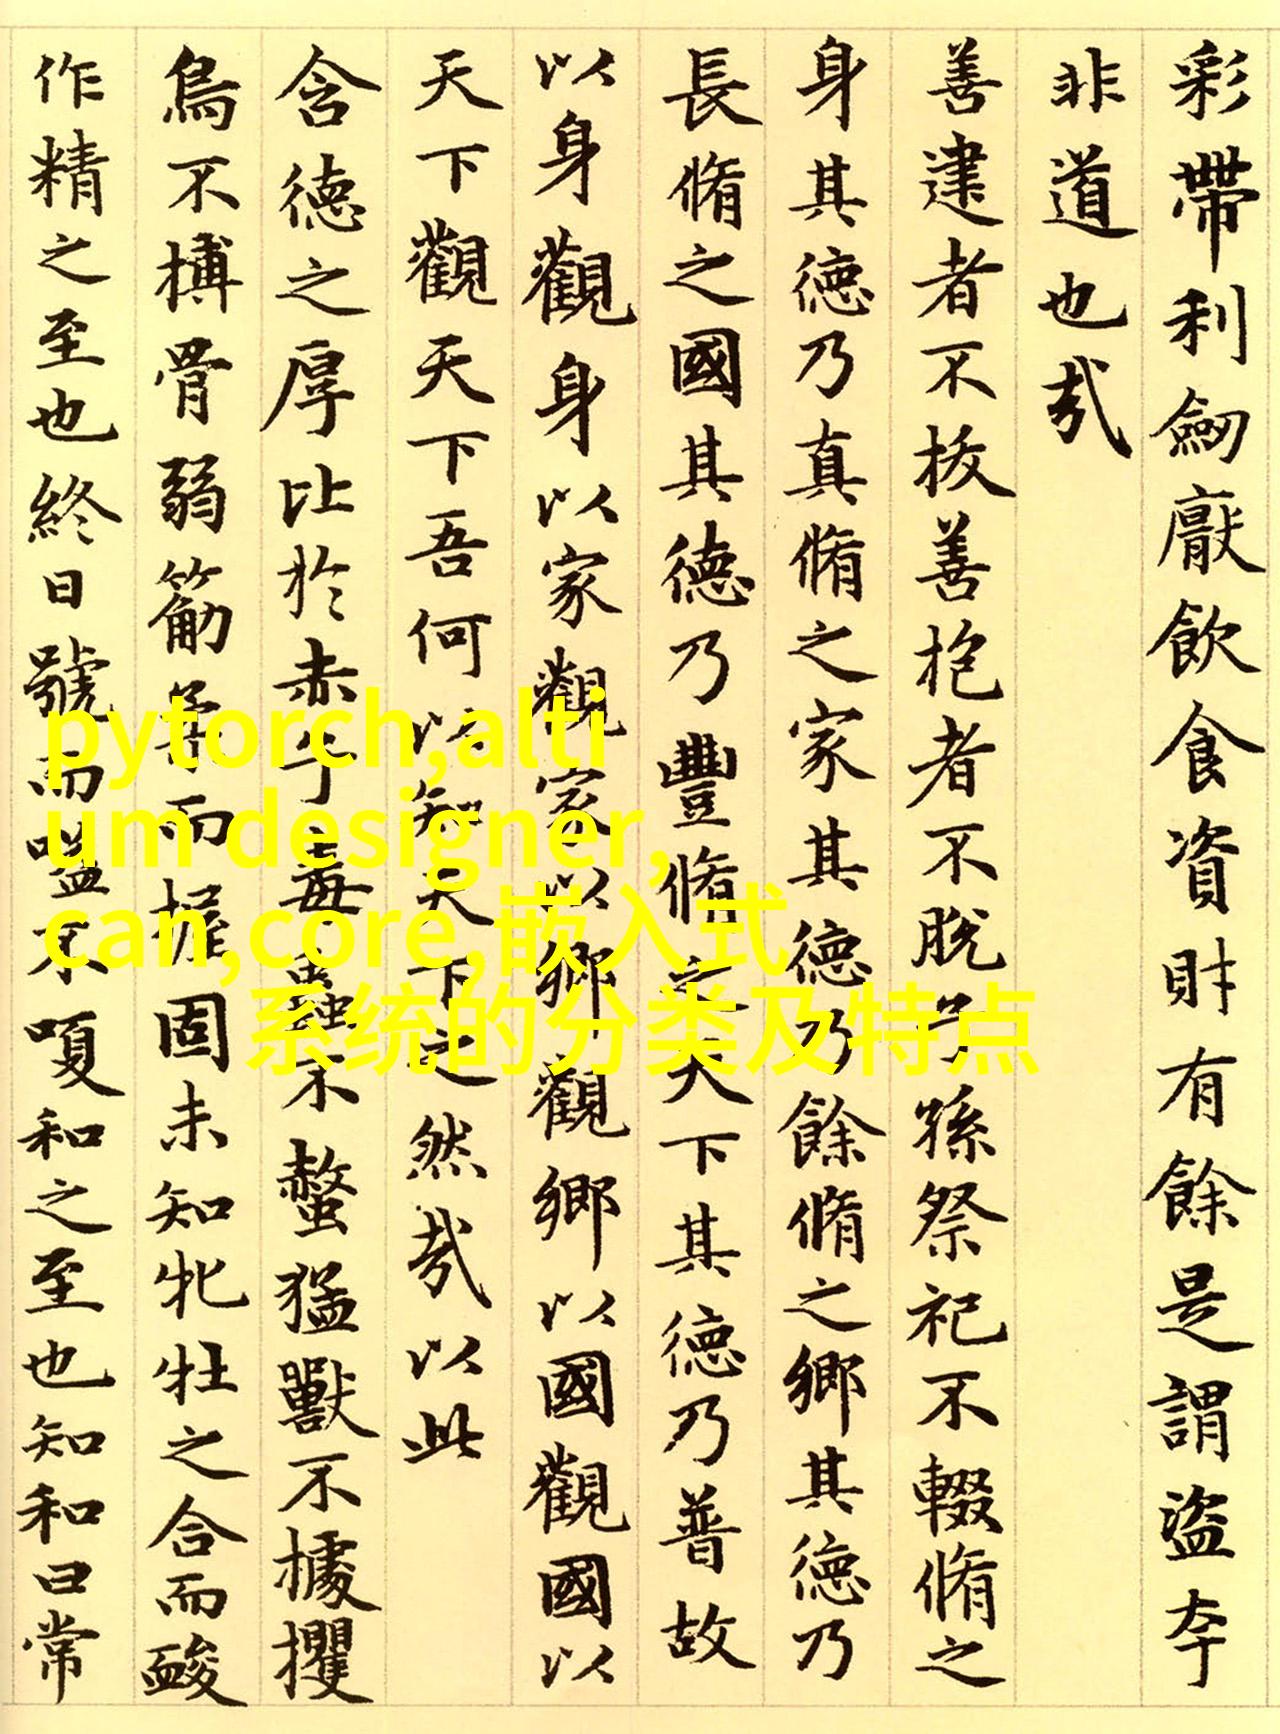 彩帶利劔厭飲食資財有餘是謂盜夸
非道也哉
善建者不拔善抱者不脫子孫祭祀不輟脩之
身其德乃真脩之家其德乃餘脩之鄉其德乃
長脩之國其德乃豐脩之天下其德乃普故
以身觀身以家觀家以鄉觀鄉以國觀國以
天下觀天下吾何以知天下之然哉以此
含德之厚比於赤子毒蟲不螫猛獸不據攫
鳥不搏骨弱筋柔而握固未知牝牡之合而䘒
作精之至也終日號而嗌不嗄和之至也知和曰常
pytorch,alti
um designer,
can,core,嵌入式
系统的分类及特点